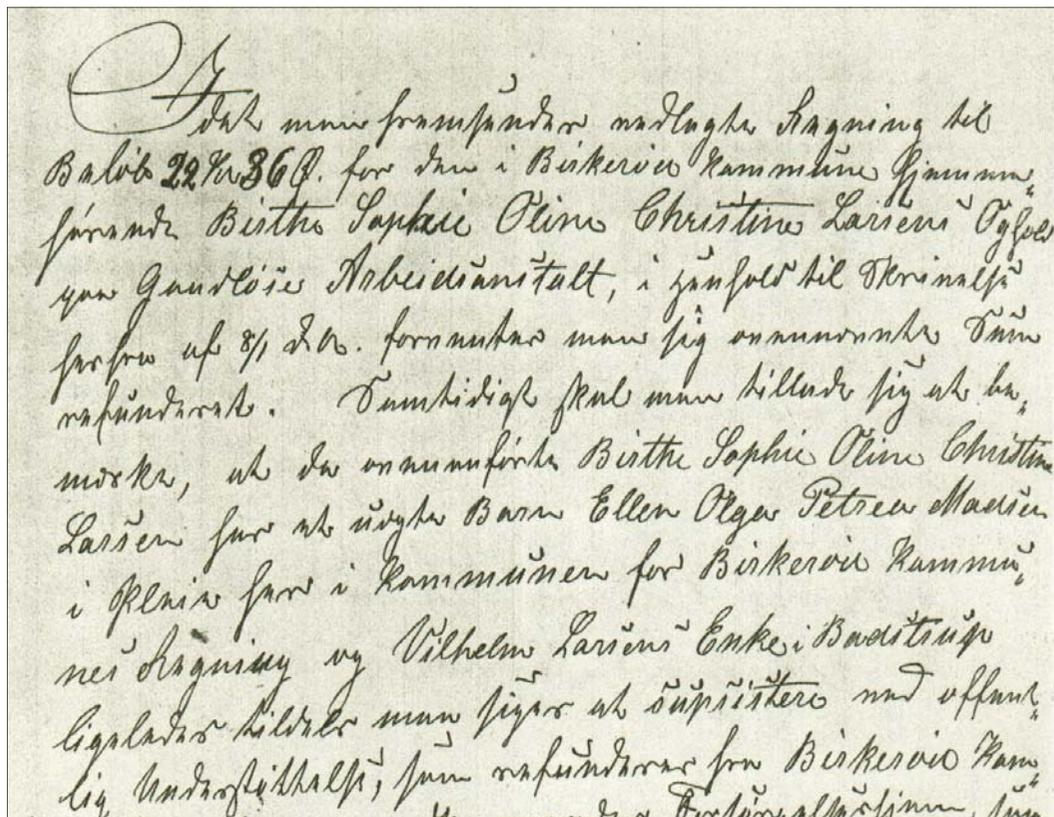 Idet man fremsender vedlagte Regning til
Beløb 22 Kr 36 Ø. for den i Birkerød Kommune hjemme-
hørende Birthe Sophie Oline Christine Larsens Ophold
paa Gandløse Arbeidsanstalt, i Henhold til Skrivelse
herfra af 8/1 d.A. forventes man sig ovennævnte Sum
refunderet. Samtidigt skal man tillade sig at be-
mærke, at da ovenanførte Birthe Sophie Oline Christine
Larsen har et uægte Barn Ellen Olga Petrea Madsen
i Pleie her i Kommunen for Birkerød Kommu-
nes Regning og Vilhelm Larsens Enke i Badstrup
ligeledes tildels maa siges at supsistere ved offent-
lig Understøttelse, som refunderes fra Birkerød Kom-
Forsørgelsesvæsen, som